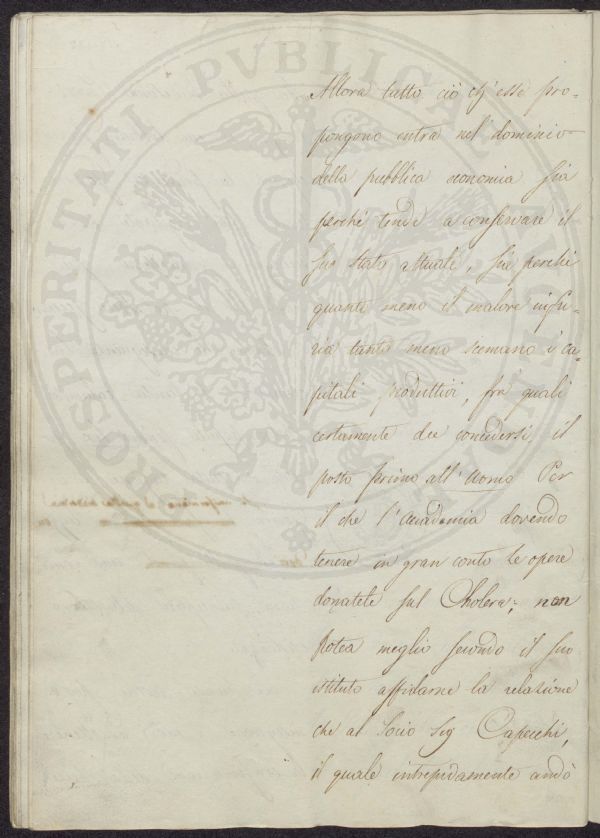 PROSPERITATI PVBLICAE AVGENDAE
Allora tutto ciò ch'esse pro-
pongono entra nel dominio
della pubblica economia sia
perchè tende a conservare il
suo stato attuale, sia perchè
quanto meno il malore infu-
ria tanto meno scemano i ca-
pitali produttivi, fra quali
certamente dee concedersi il
posto primo all'uomo Per
il che l'Accademia dovendo
tenere in gran conto le opere
donatele sul Cholera; non
potea meglio secondo il suo
istituto affidarne la relazione
che al Socio Sig Capecchi,
il quale intrepidamente andò